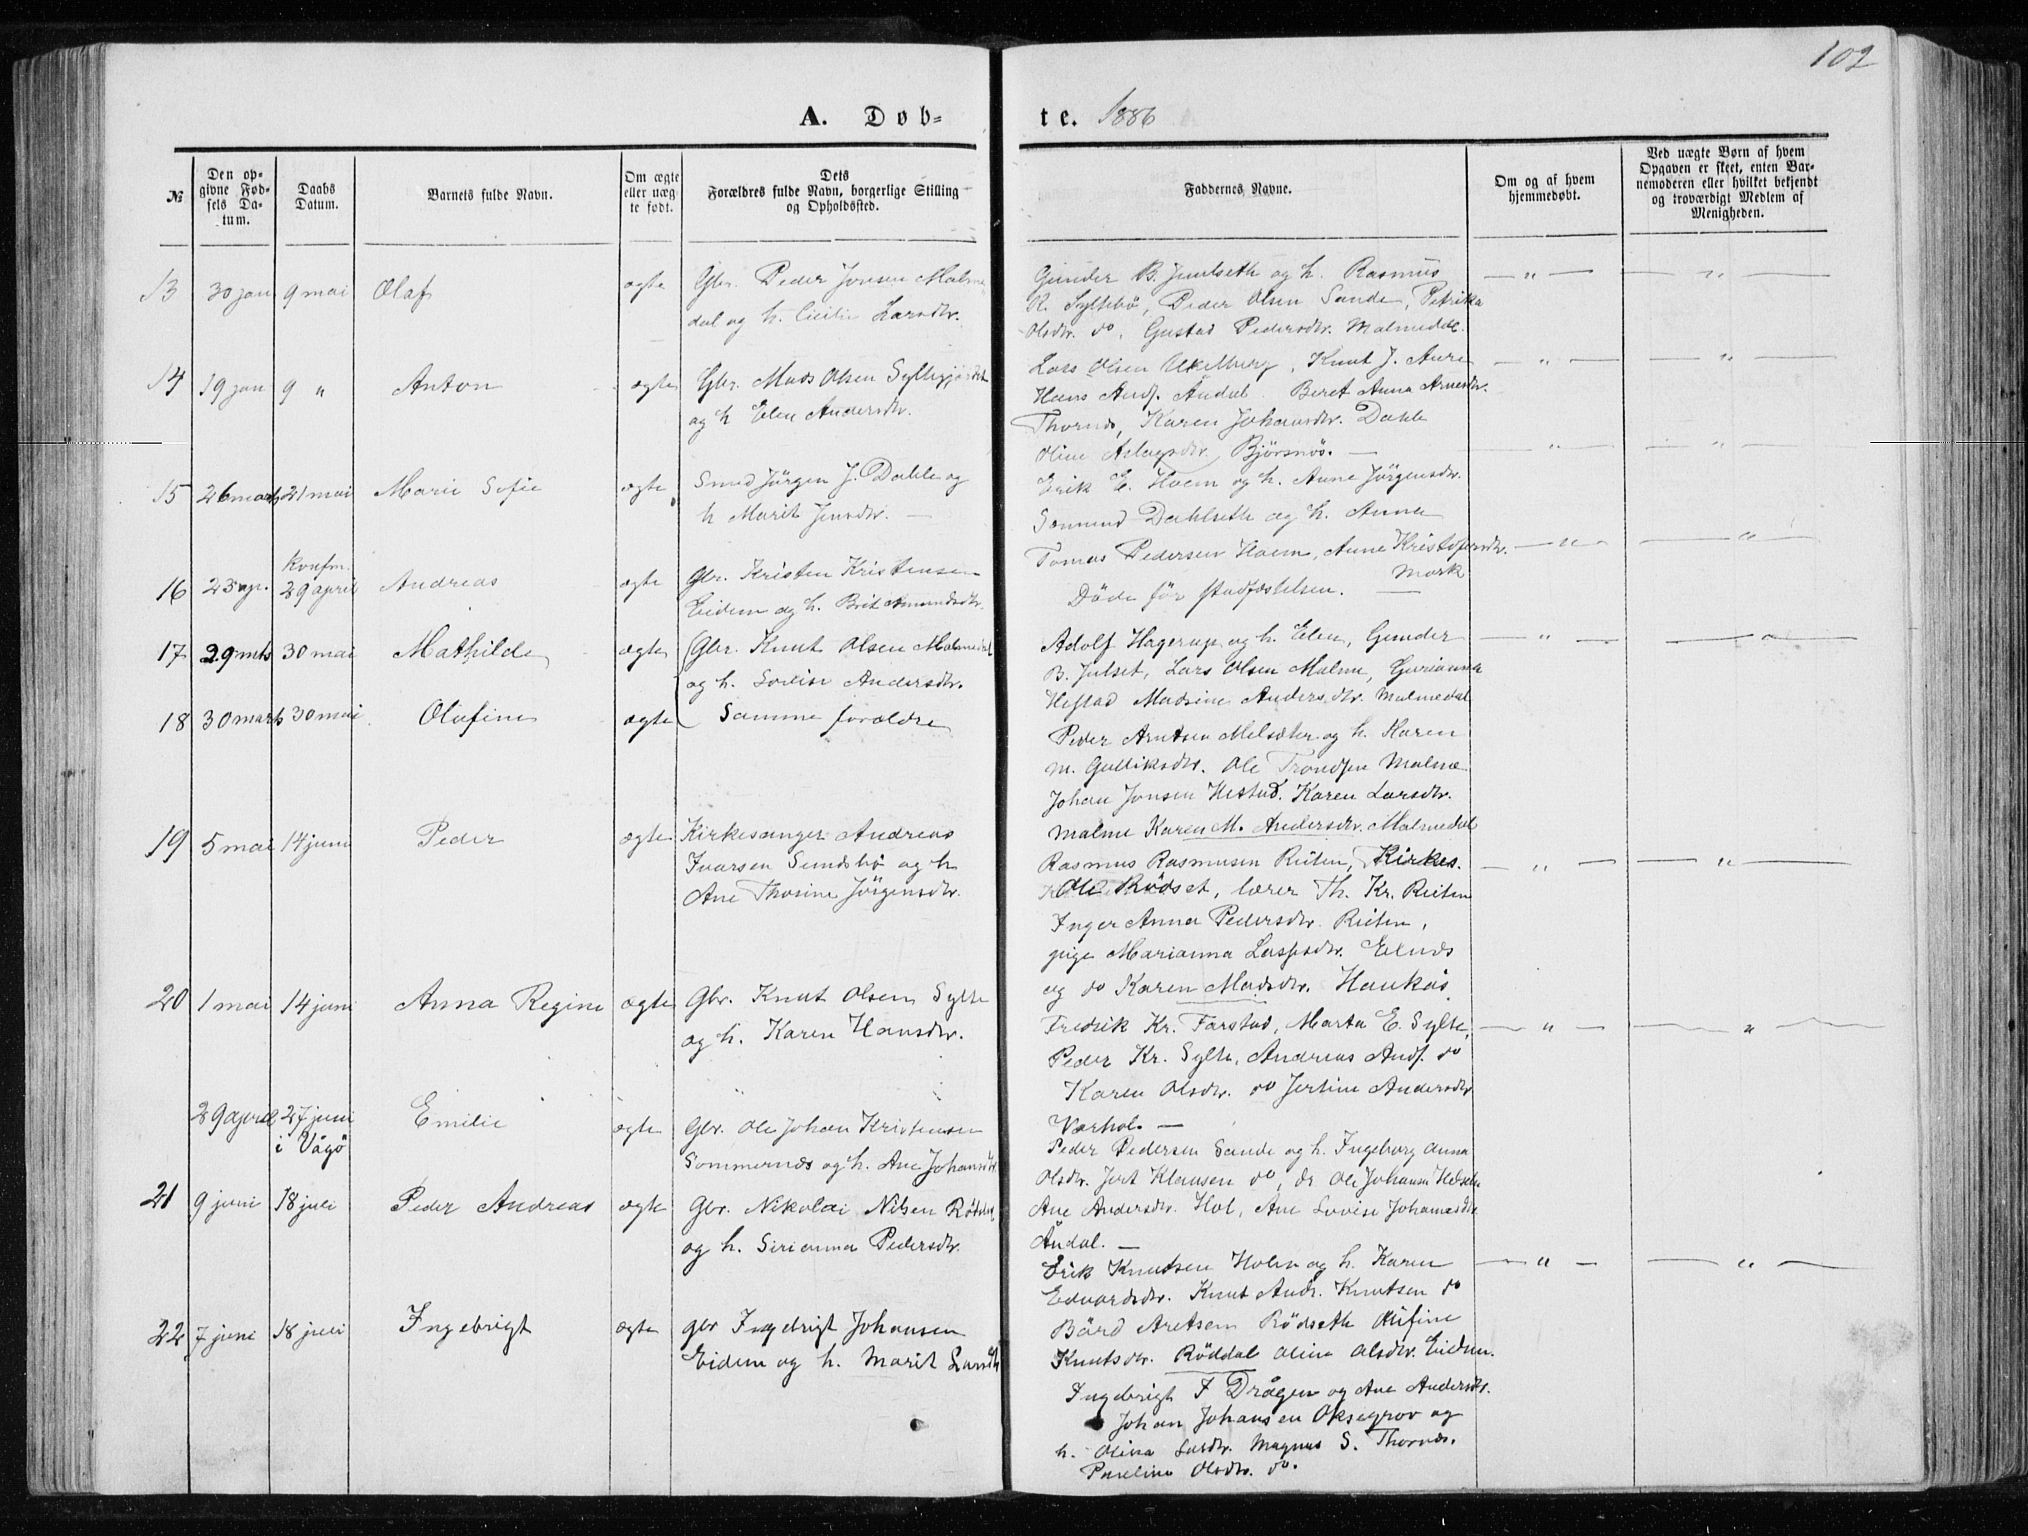 102
A. Døb-
te. 1886
№
Den op-
givne Fød-
sels Da-
tum.
Daabs
Datum.
Barnets fulde Navn.
Om ægte
eller uæg-
te født.
Dets
Forældres fulde Navn, borgerlige Stilling
og Opholdssted.
Faddernes Navne.
Om og af hvem
hjemmedøbt.
Ved uægte Børn af hvem
Opgaven er skeet, enten Bar-
nemoderen eller hvilket bekjendt
og troværdigt Medlem af
Menigheden.
13 30 jan 9 mai Olaf ægte Gbr. Peder Jonsen Malme
dal og h. Cicilie Larsdtr.
Gunder B. Julseth og h. Rasmus
R. Syltebø, Peder Olsen Sande, Petrika
Olsdtr. do, Gustad Pedersdtr. Malmedal
14 19 jan 9 " Anton ægte Gbr. Mads Olsen Syltegjerdet
og h Elen Andersdtr.
Lars Olsen Akelberg, Knut J. Aure
Hans Andr. Aadal. Beret Anna Arnesdtr.
Thornes, Karen Johansdtr. Dahle
Oline Aslagsdtr. Bjørsnøs. —
15 26 marts 21 mai Marie Sofie ægte Smed Jørgen J. Dahle og
h Marit Jensdtr. —
Erik E. Hoem og h. Anne Jørgensdtr.
Somund Dahlseth og h. Anna
Tomas Pedersen Hoem, Anne Kristofersdtr.
Mork
16 23 ap. Konfm. 29 april Andreas ægte Gbr. Kristen Kristensen
Eidem og h. Brit Amundsdtr.
Døde før stadfæstelsen. —
17 29 mts 30 mai Mathilde ægte Gbr. Knut Olsen Malmedal
og h. Lovise Andersdtr.
Adolf Hagerup og h. Elen, Gunder
B. Julset, Lars Olsen Malme, Gurianna
Hestad Madsine Andersdtr. Malmedal
18 30 marts 30 mai Olufine ægte Samme forældre
Peder Arntsen Melsæter og h. Karen
M. Gulliksdtr. Ole Trondsen Malme
Johan Jonsen Hestad. Karen Larsdtr.
Malme Karen M. Andersdtr. Malmedal
19 5 mai 14 juni Peder ægte Kirkesanger Andreas
Ivarsen Sundsbø og h
Ane Thosine Jørgensdtr.
Rasmus Rasmusen Reiten, Kirkes.
Ole Rødset, lærer Th. Kr. Reiten
Inger Anna Pedersdtr. Reiten,
pige Marianna Laspsdtr. Eenæs
og do Karen Madsdtr. Haukaas
20 1 mai 14 juni Anna Regine ægte Gbr. Knut Olsen Sylte
og h. Karen Hansdtr.
Fredrik Kr. Farstad, Marta E. Sylte,
Peder Kr. Sylte, Andreas Andr. do
Karen Olsdtr. do Jertine Andersdtr
Varhol. —
29 april 27 juni i Vågø Emilie ægte Gbr. Ole Johan Kristensen
Sommernes og h. Ane Johansdtr
Peder Pedersen Sande og h. Ingeborg Anna
Olsdtr. Jert Klausen do, dr Ole Johansen
Ane Andersdtr. Hol, Ane Lovise Johanesdtr
Åndal. —
21 9 juni 18 juli Peder Andreas ægte Gbr. Nikolai Nilsen Rødal
og h. Sirianna Pedersdtr.
Erik Knutsen Holen og h. Karen
Edvardsdtr. Knut Andr. Knutsen do
Bård Aretsen Rødseth Olifine
Knutsdtr. Røddal Olina Olsdtr. Eidem.
22 7 juni 18 juli Ingebrigt ægte gbr Ingebrigt Johansen
Eidem og h. Marit Larsdtr
Ingebrigt I Drågen og Ane Andersdtr.
Johan Johansen Oksegrov og
h. Olina Larsdtr. Magnus S. Thornæs.
Pauline Olsdtr. do.